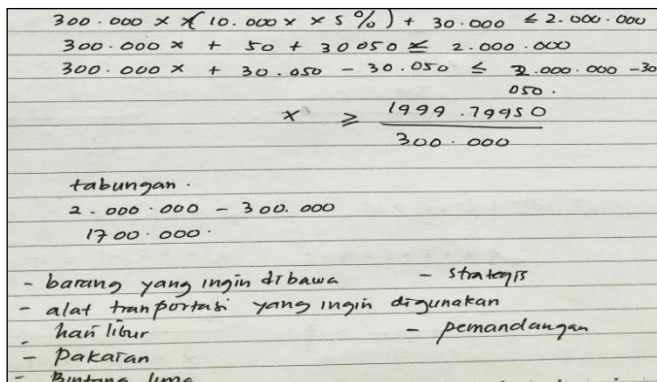 300.000 x x(10.000 x x 5%) + 30.000 ≤ 2.000.000
300.000 x + 50 + 30050 ≤ 2.000.000
300.000 x + 30.050 - 30.050 ≤ 2.000.000 -30
050.
x ≥ 1999.79950
300.000
tabungan.
2.000.000 - 300.000
1700.000.
- barang yang ingin dibawa - strategis
- alat tranportasi yang ingin digunakan
- hari libur - pemandangan
- Pakaian
- Bintang lima